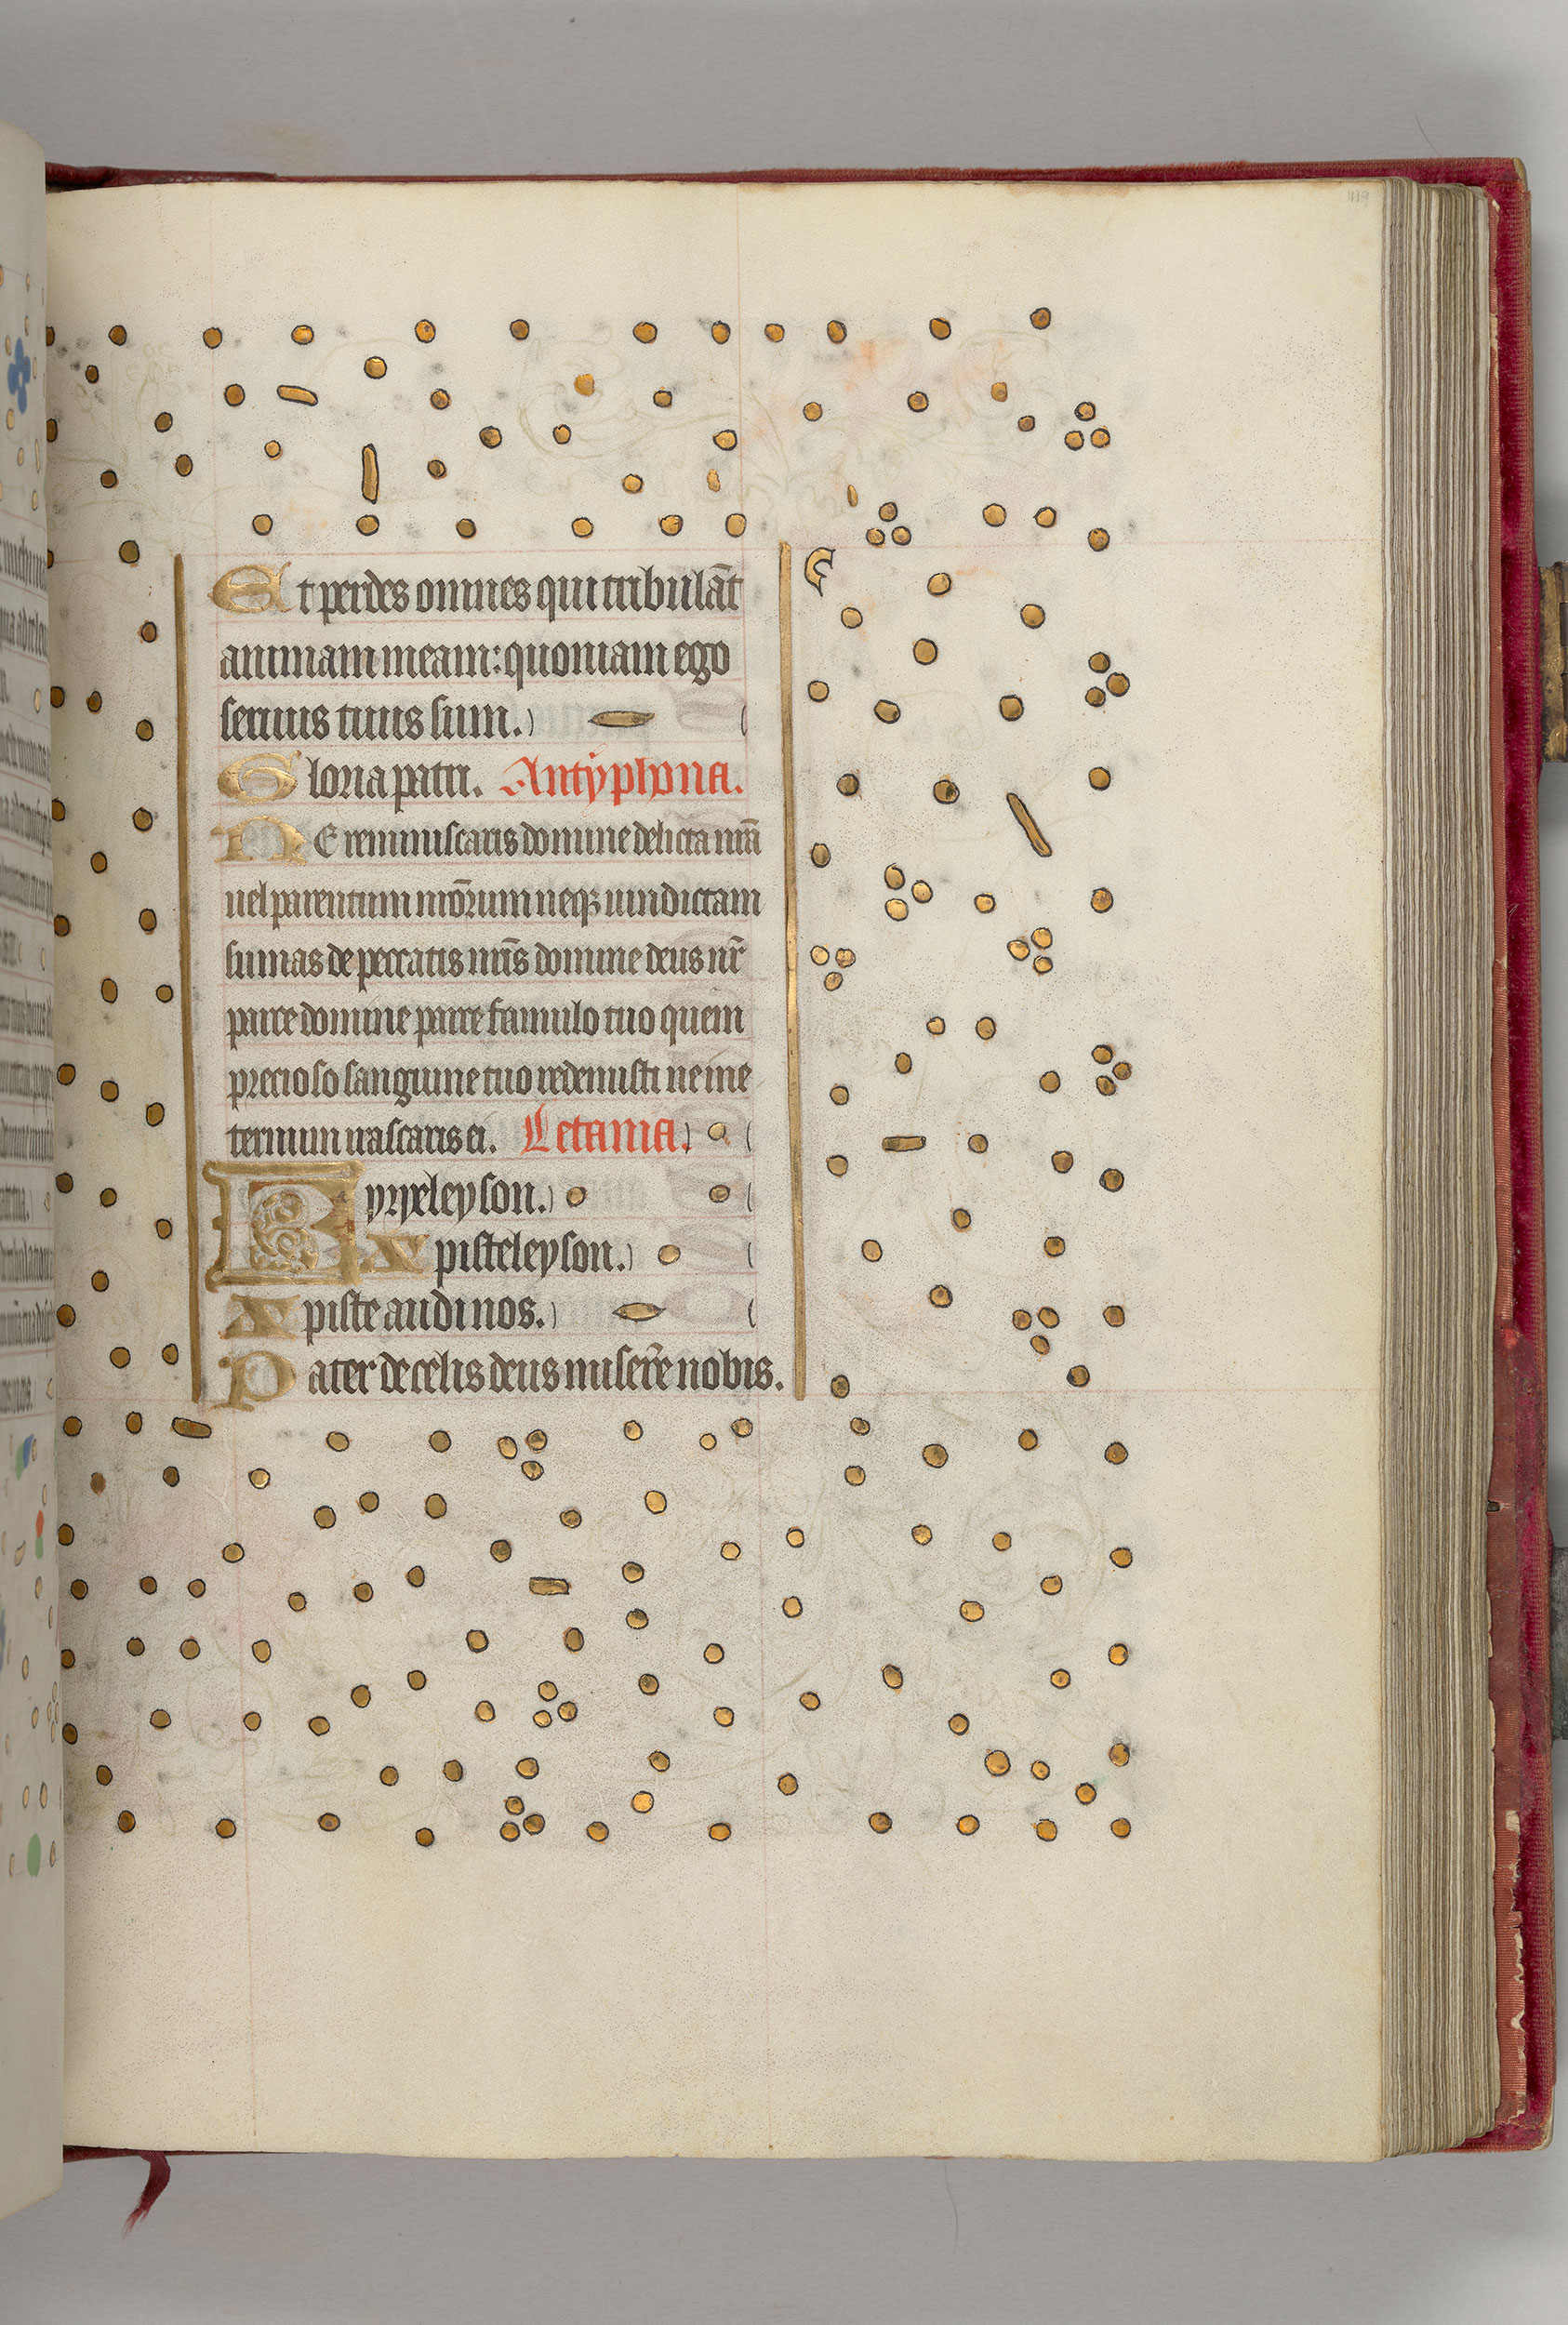 Et perdes omnes qui tribulãt
animam meam: quoniam ego
seruus tuus sum.
Gloria patri. Antyphona.
NE reminiscaris domine delicta nr̃a
uel parentum nr̃orum neqꝫ uindictam
sumas de peccatis nr̃is domine deus nr̃
parce domine parce famulo tuo quem
precioso sanguine tuo redemisti ne ine
ternum irascaris ei. Letania.
Kyrieleyson.
Xpisteleyson.
Xpiste audi nos.
Pater de celis deus miserẽ nobis.